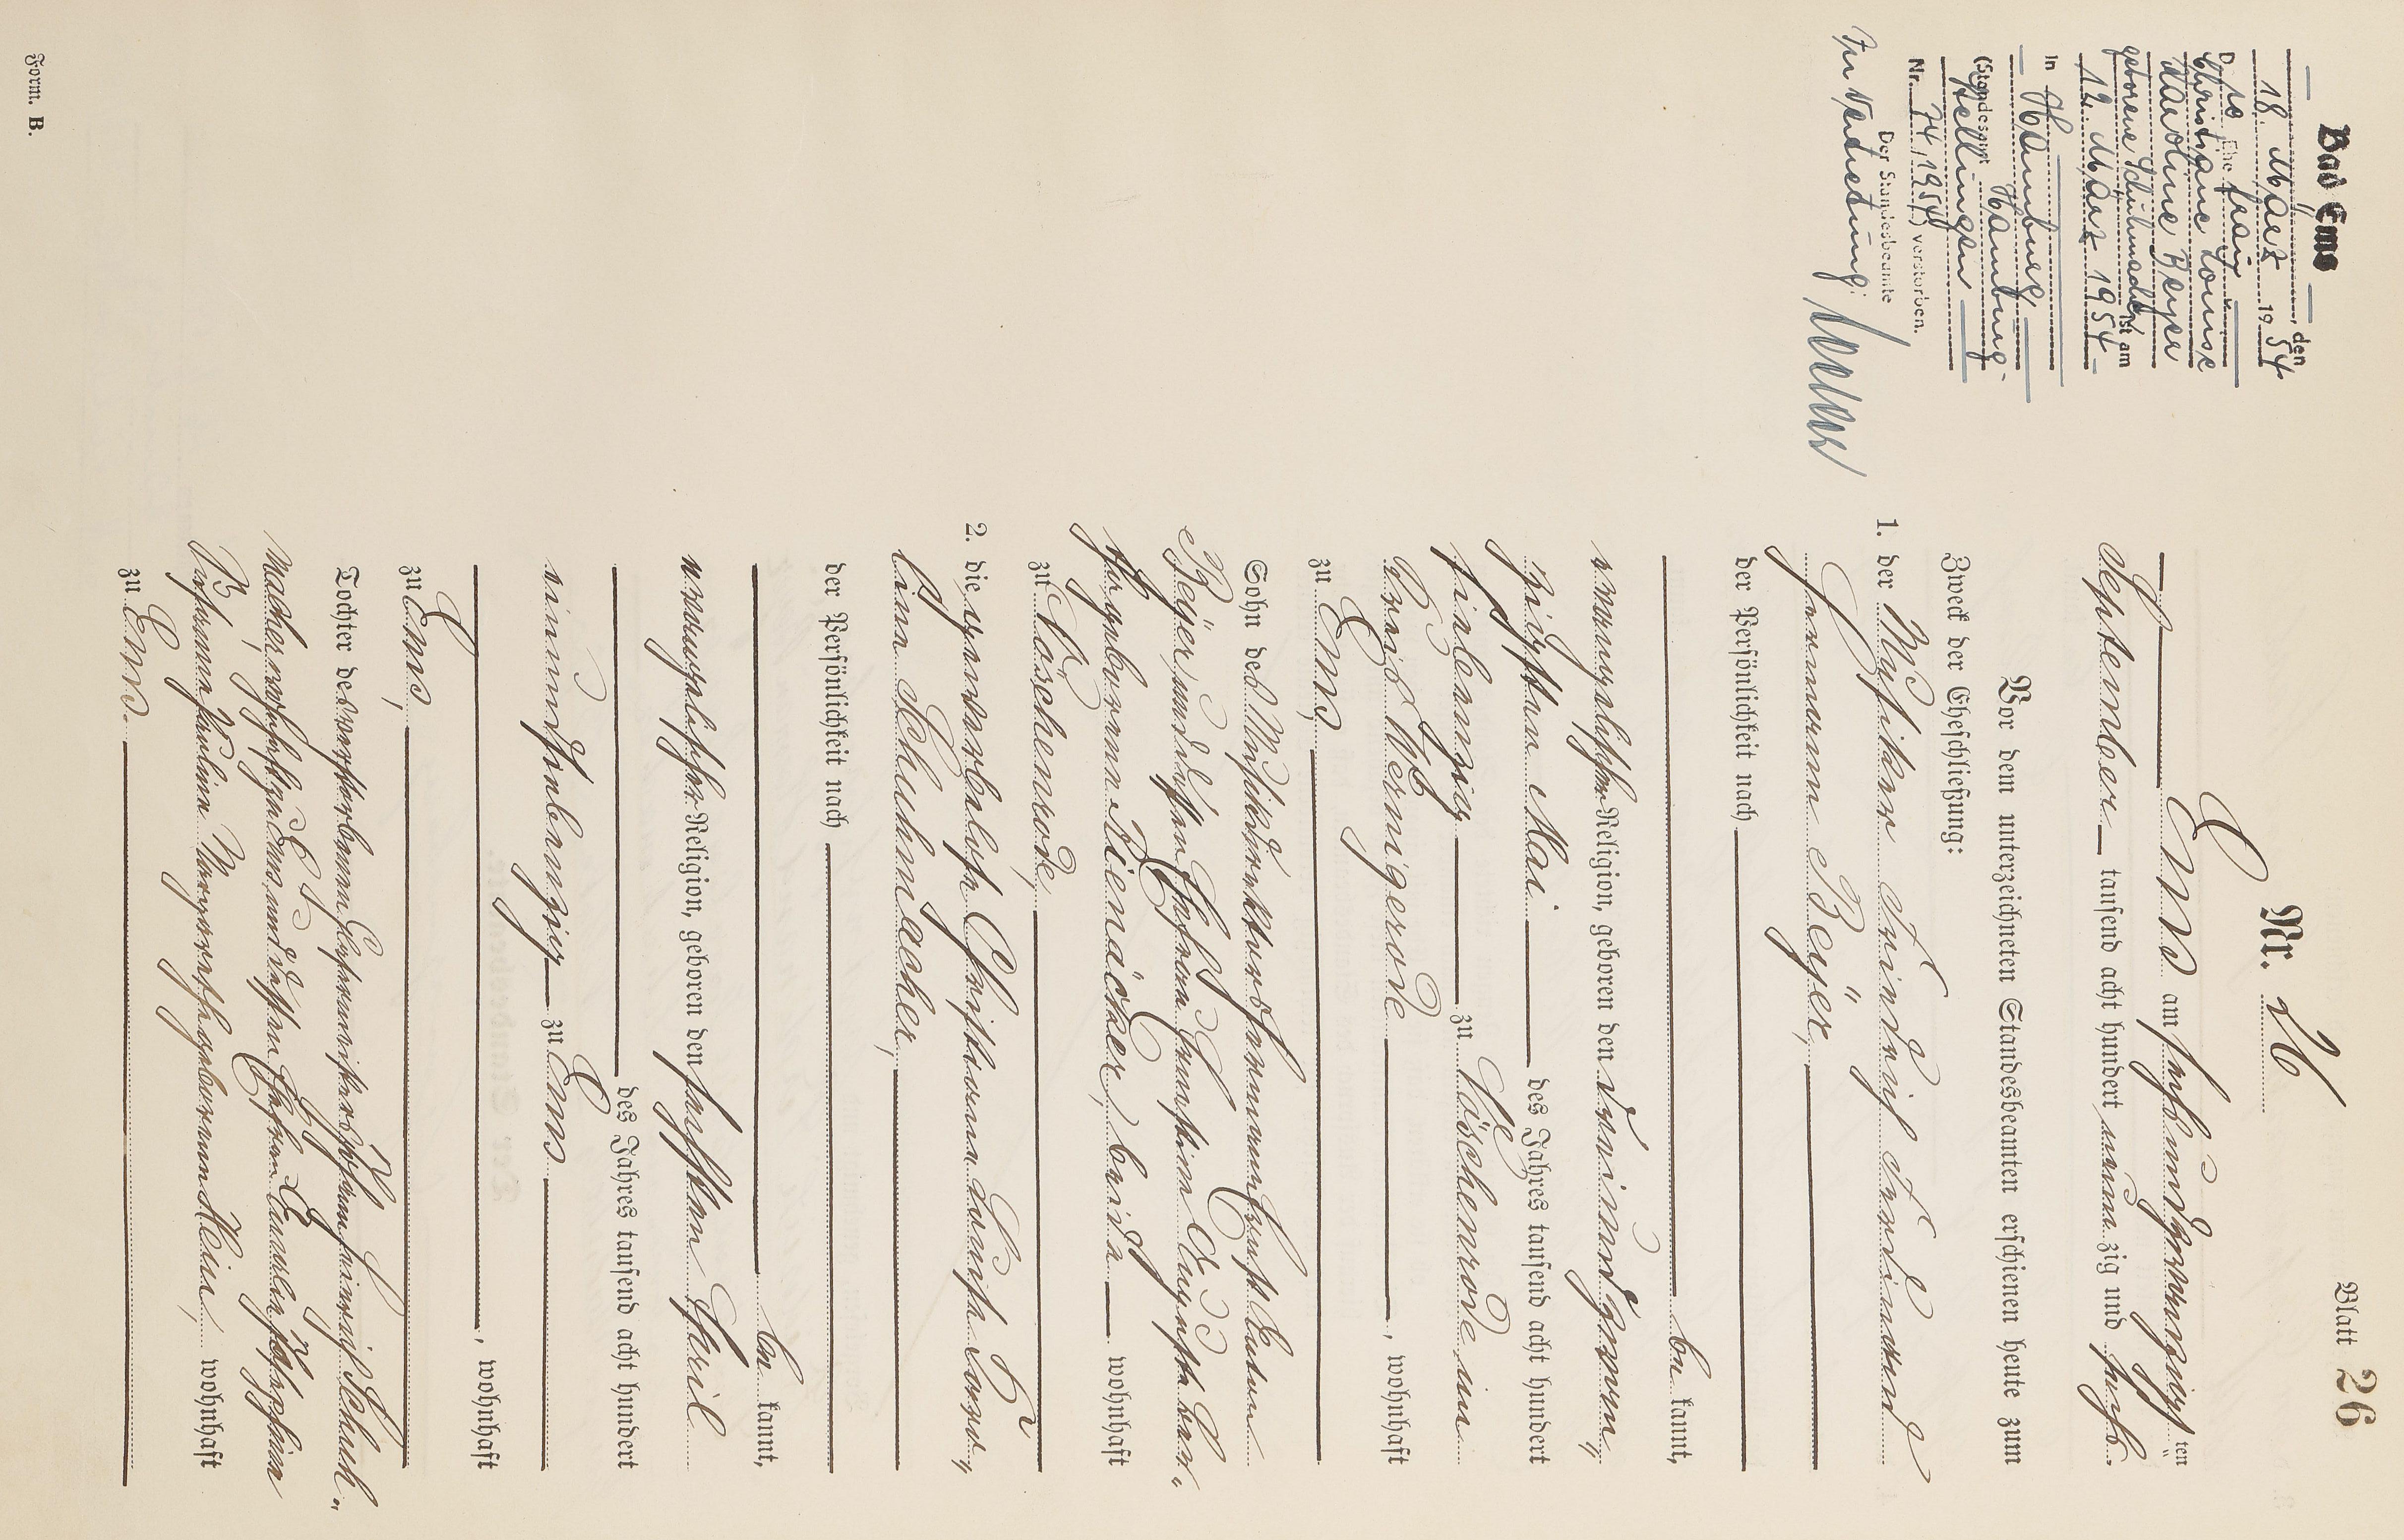 Blatt 26
Nr. 26
Ems am sechsundzwanzigsten
September tausend acht hundert neunzig und sechs
Vor dem unterzeichneten Standesbeamten erschienen heute zum
Zweck der Eheschließung:
1. der Musiker Friedrich Ferdinand
Hermann Beyer,
der Persönlichkeit nach
be kannt,
evangelischer Religion, geboren den dreiundzwan-
zigsten Mai des Jahres tausend acht hundert
siebenzig zu Wäschenrode im
Kreis Wernigerode, wohnhaft
zu Ems,
Sohn des Musikdirektors Hermann
Beyer, und dessen Ehefrau
geborenen Bienäcker, beide wohnhaft
zu Väschenrode,
2. die gewerbelose Christiane Louise Karo-
line Schuhmacher,
der Persönlichkeit nach
be kannt,
evangelischer Religion, geboren den sechsten April
des Jahres tausend acht hundert
einundsiebenzig zu Ems
, wohnhaft
zu Ems,
Tochter des verstorbenen Schuh-
macher, wohnhaft zu Ems, und dessen Ehefrau
Johanna Pauline Margarethe geborenen Klein, wohnhaft
zu Ems.
Bad Ems, den
18. März 1954
Die Ehefrau
Christiane Louise
Karoline Beyer
geborene Schuhmacher ist am
12. März 1954
in Hamburg
(Standesamt Hamburg-
Fellingen
Nr. 74/1954) verstorben.
Der Standesbeamte
In Vertretung:
Form. B.